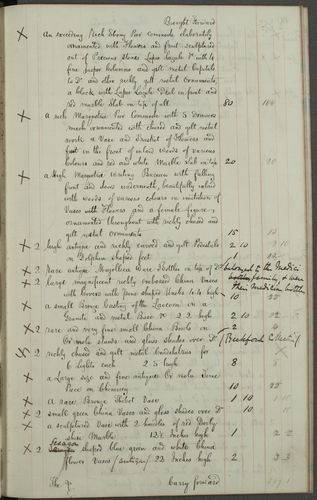 Brought forward
An exceeding rich Ebony Pier Commode elaborately
ornamented with Flowers and fruit sculptured
out of Precious stones Lapis Lazuli &c with 4
fine Jasper Columns and gilt metal Capitals
to Do and other richly gilt metal Ornaments,
a black with Lapis Lazuli Dial in front and
red marble Slab on top of all 80
a rich Marquetrie Pier Commode with 5 Drawers
much ornamented with chased and gilt metal
work a Vase and Basket of Flowers and
fruit in the front of inlaid Woods of various
Colours and red and white Marble Slab on top 20
a high Marquetrie Writing Bureau with falling
front and doors underneath, beautifully inlaid
with woods of various colours in imitation of
Vases with Flowers and a female figure,
ornamented throughout with richly chased and
gilt metal ornaments 15
2 high antique and richly carved and gilt Pedestals
on Dolphin shaped feet 2 10
2 rare antique Majollica Ware Bottles on top of Do belonged to the Medici
family, & were their medicine bottles
2 large magnificent richly embossed China Vases
with Covers with pine shaped knobs to Do high 10
a small Bronze Casting of the Laocoon on a
Granite and metal Base 2 2 high 2 10
2 rare and very fine small China Bowls on
Or molu stands and glass shades over Do 2 (Beckford's Meeting)
2 richly chased and gilt metal Candelabras for
6 Lights each 2 5 high 8
a Large size and fine antique Or molu
Piece on Chimney 10
a rare Bronze Shabet Vase 1 10
2 small green China Vases and glass shades over Do 1 10
a sculptured Vase with 2 handles of red Derby-
shire Marble 12½ Inches high 1
2 shaped blue green and white China
flower Vases (antique) 22 Inches high 2
Carry forward